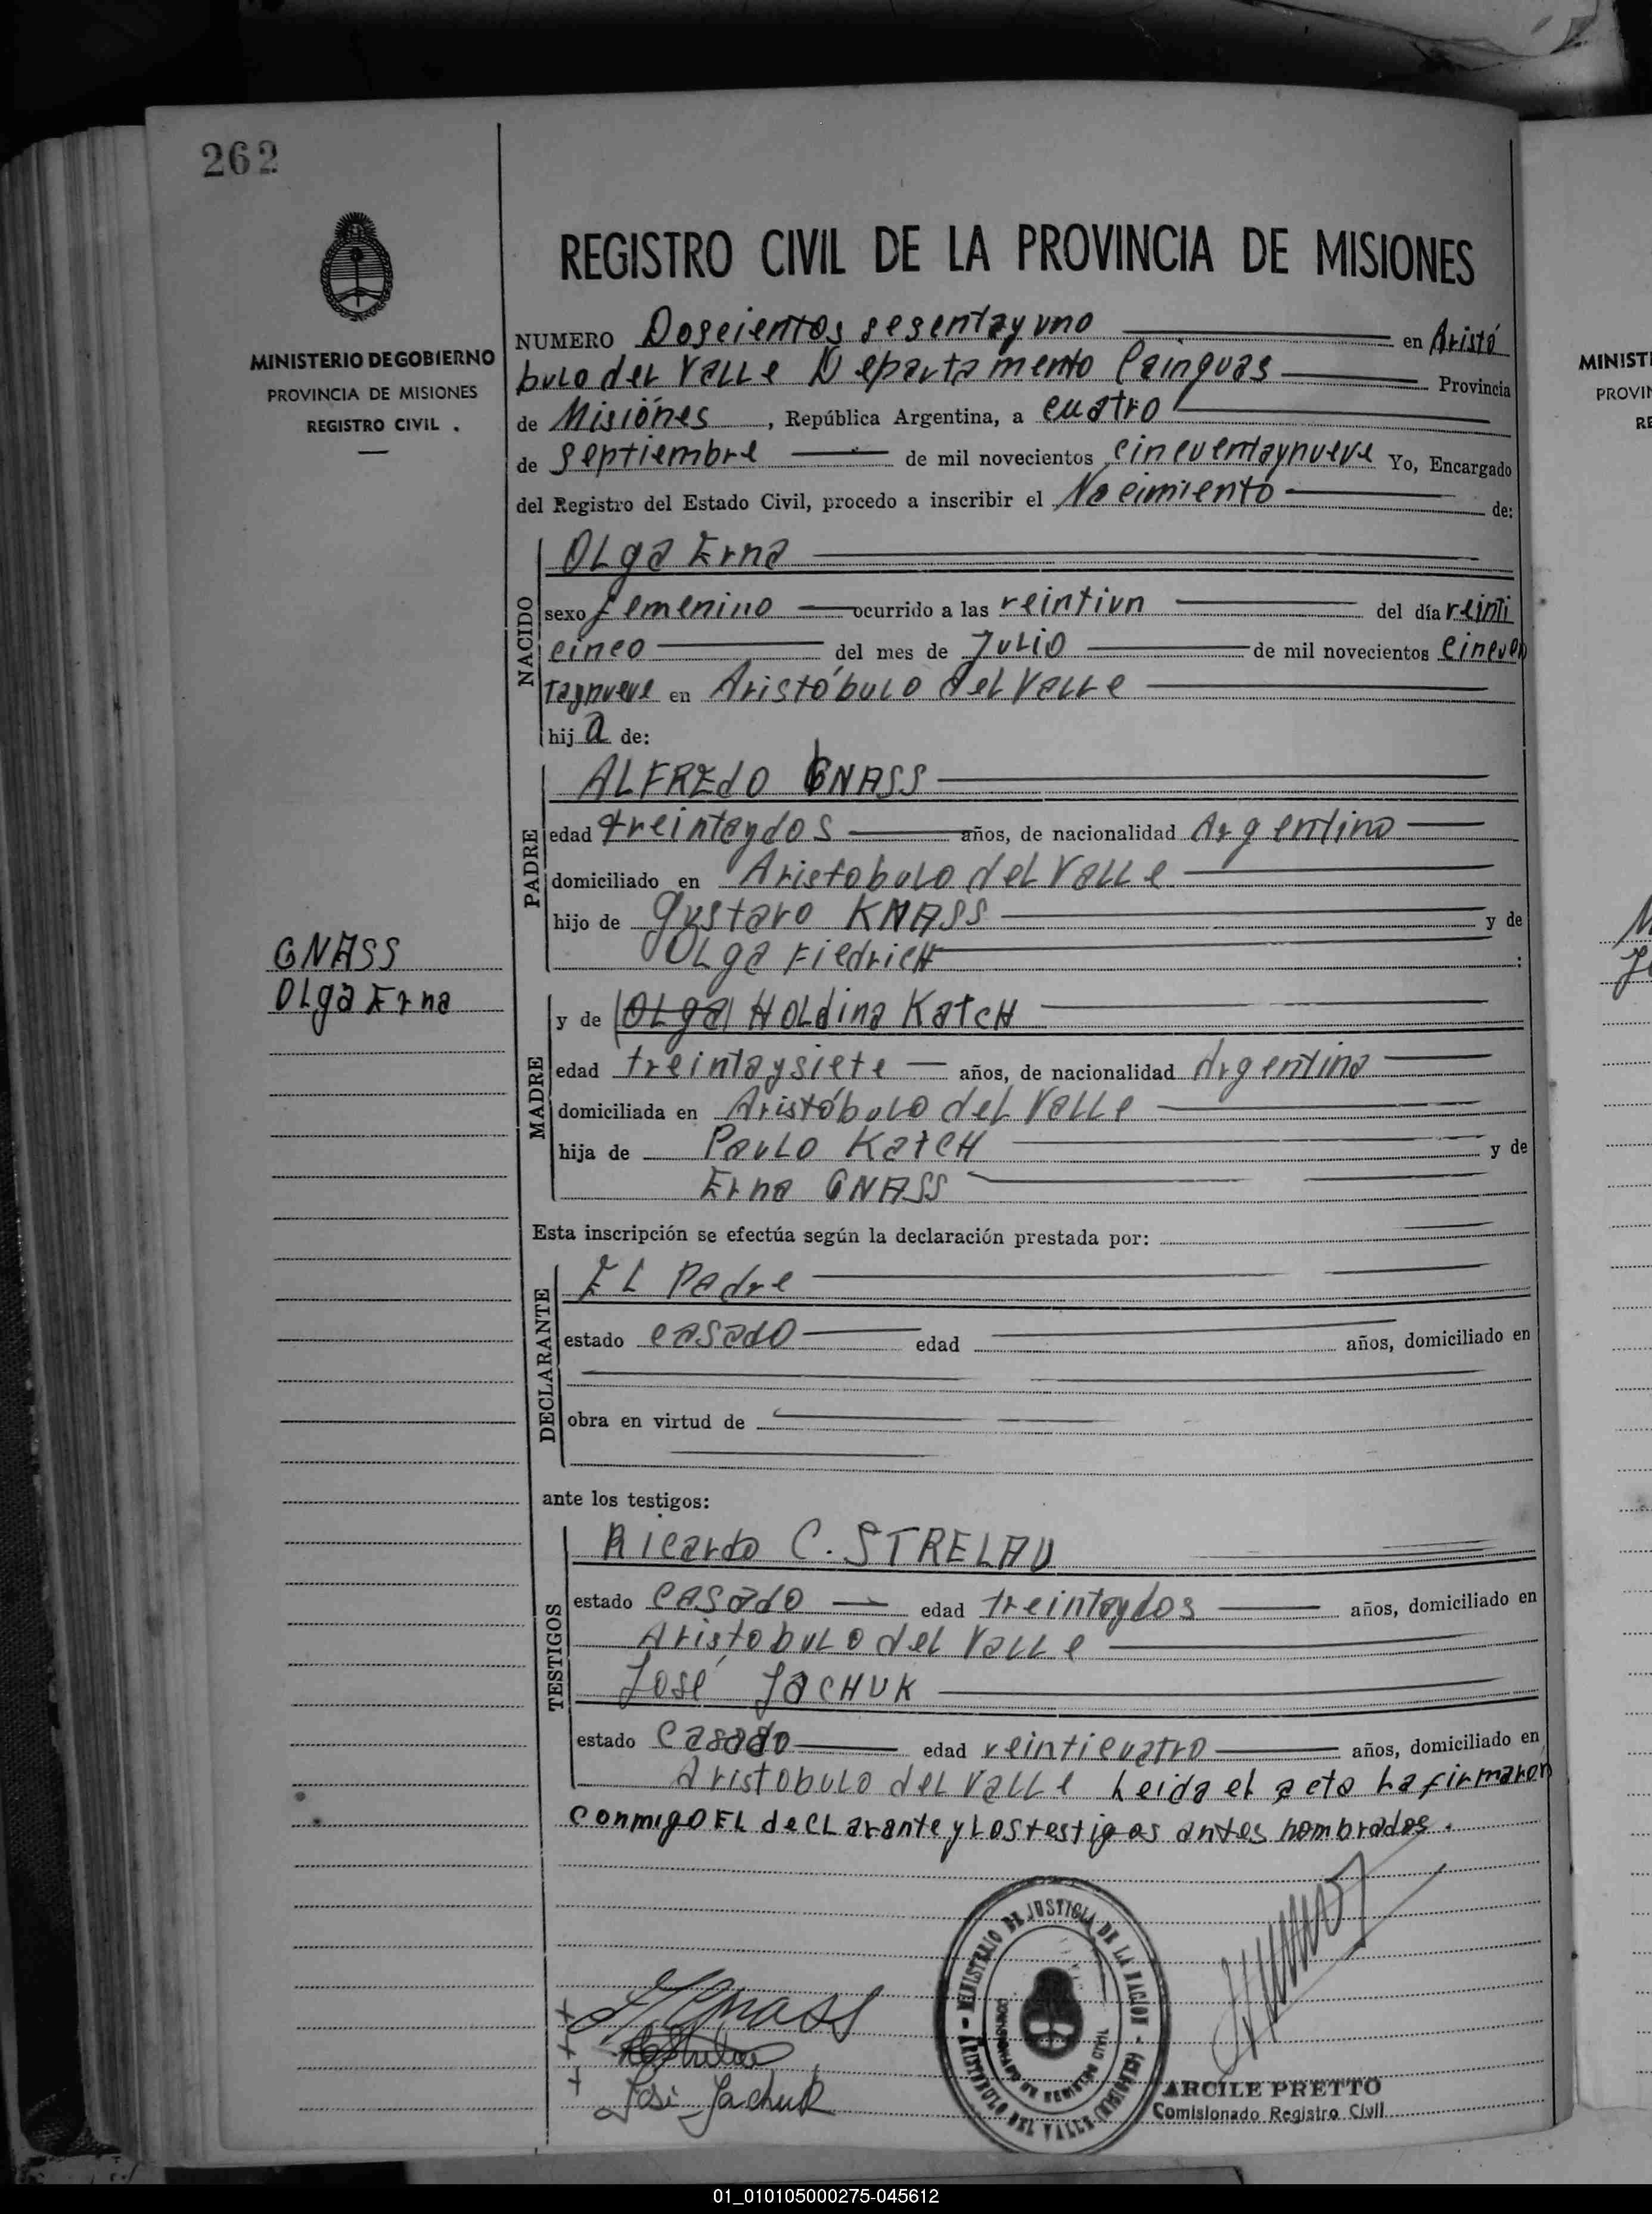 262
REGISTRO CIVIL DE LA PROVINCIA DE MISIONES
MINISTERIO DE GOBIERNO
PROVINCIA DE MISIONES
REGISTRO CIVIL .
NUMERO Doscientos sesentayuno en Aristó
bulo del Valle Departamento Cainguas Provincia
de Misiónes, República Argentina, a cuatro
de septiembre de mil novecientos cincuentaynueve Yo, Encargado
del Registro del Estado Civil, procedo a inscribir el Nacimiento de:
NACIDO
Olga Erna
sexo femenino ocurrido a las veintiun del día veinti
cinco del mes de Julio de mil novecientos cincuen
taynueve en Aristóbulo del Valle
hija de:
PADRE
ALFREdO GNASS
edad treintaydos años, de nacionalidad Argentino
domiciliado en Aristobulo del Valle
hijo de Gustavo KNASS y de
Olga Fiedrich :
GNASS
Olga Erna
MADRE
y de (Olga) Holdina Katch
edad treintaysiete años, de nacionalidad Argentina
domiciliada en Aristóbulo del Valle
hija de Paulo Katch y de
Erna GNASS
Esta inscripción se efectúa según la declaración prestada por:
DECLARANTE
El Padre
estado casado edad años, domiciliado en
obra en virtud de
ante los testigos:
TESTIGOS
Ricardo C. STRELAU
estado casado edad treintaydos años, domiciliado en
Aristobulo del Valle
José Jachuk
estado casado edad veinticuatro años, domiciliado en
Aristobulo del Valle Leida el acta la firmaron
conmigo El declarante y los testigos antes nombrados.
MINISTERIO DE JUSTICIA DE LA NACION - ARISTOBULO DEL VALLE (MISIONES) -
COMISIONADO DE REGISTRO CIVIL
Gnass
José Jachuk
ARCILE PRETTO
Comisionado Registro Civil
MINIST
PROVIN
RE
01_010105000275-045612